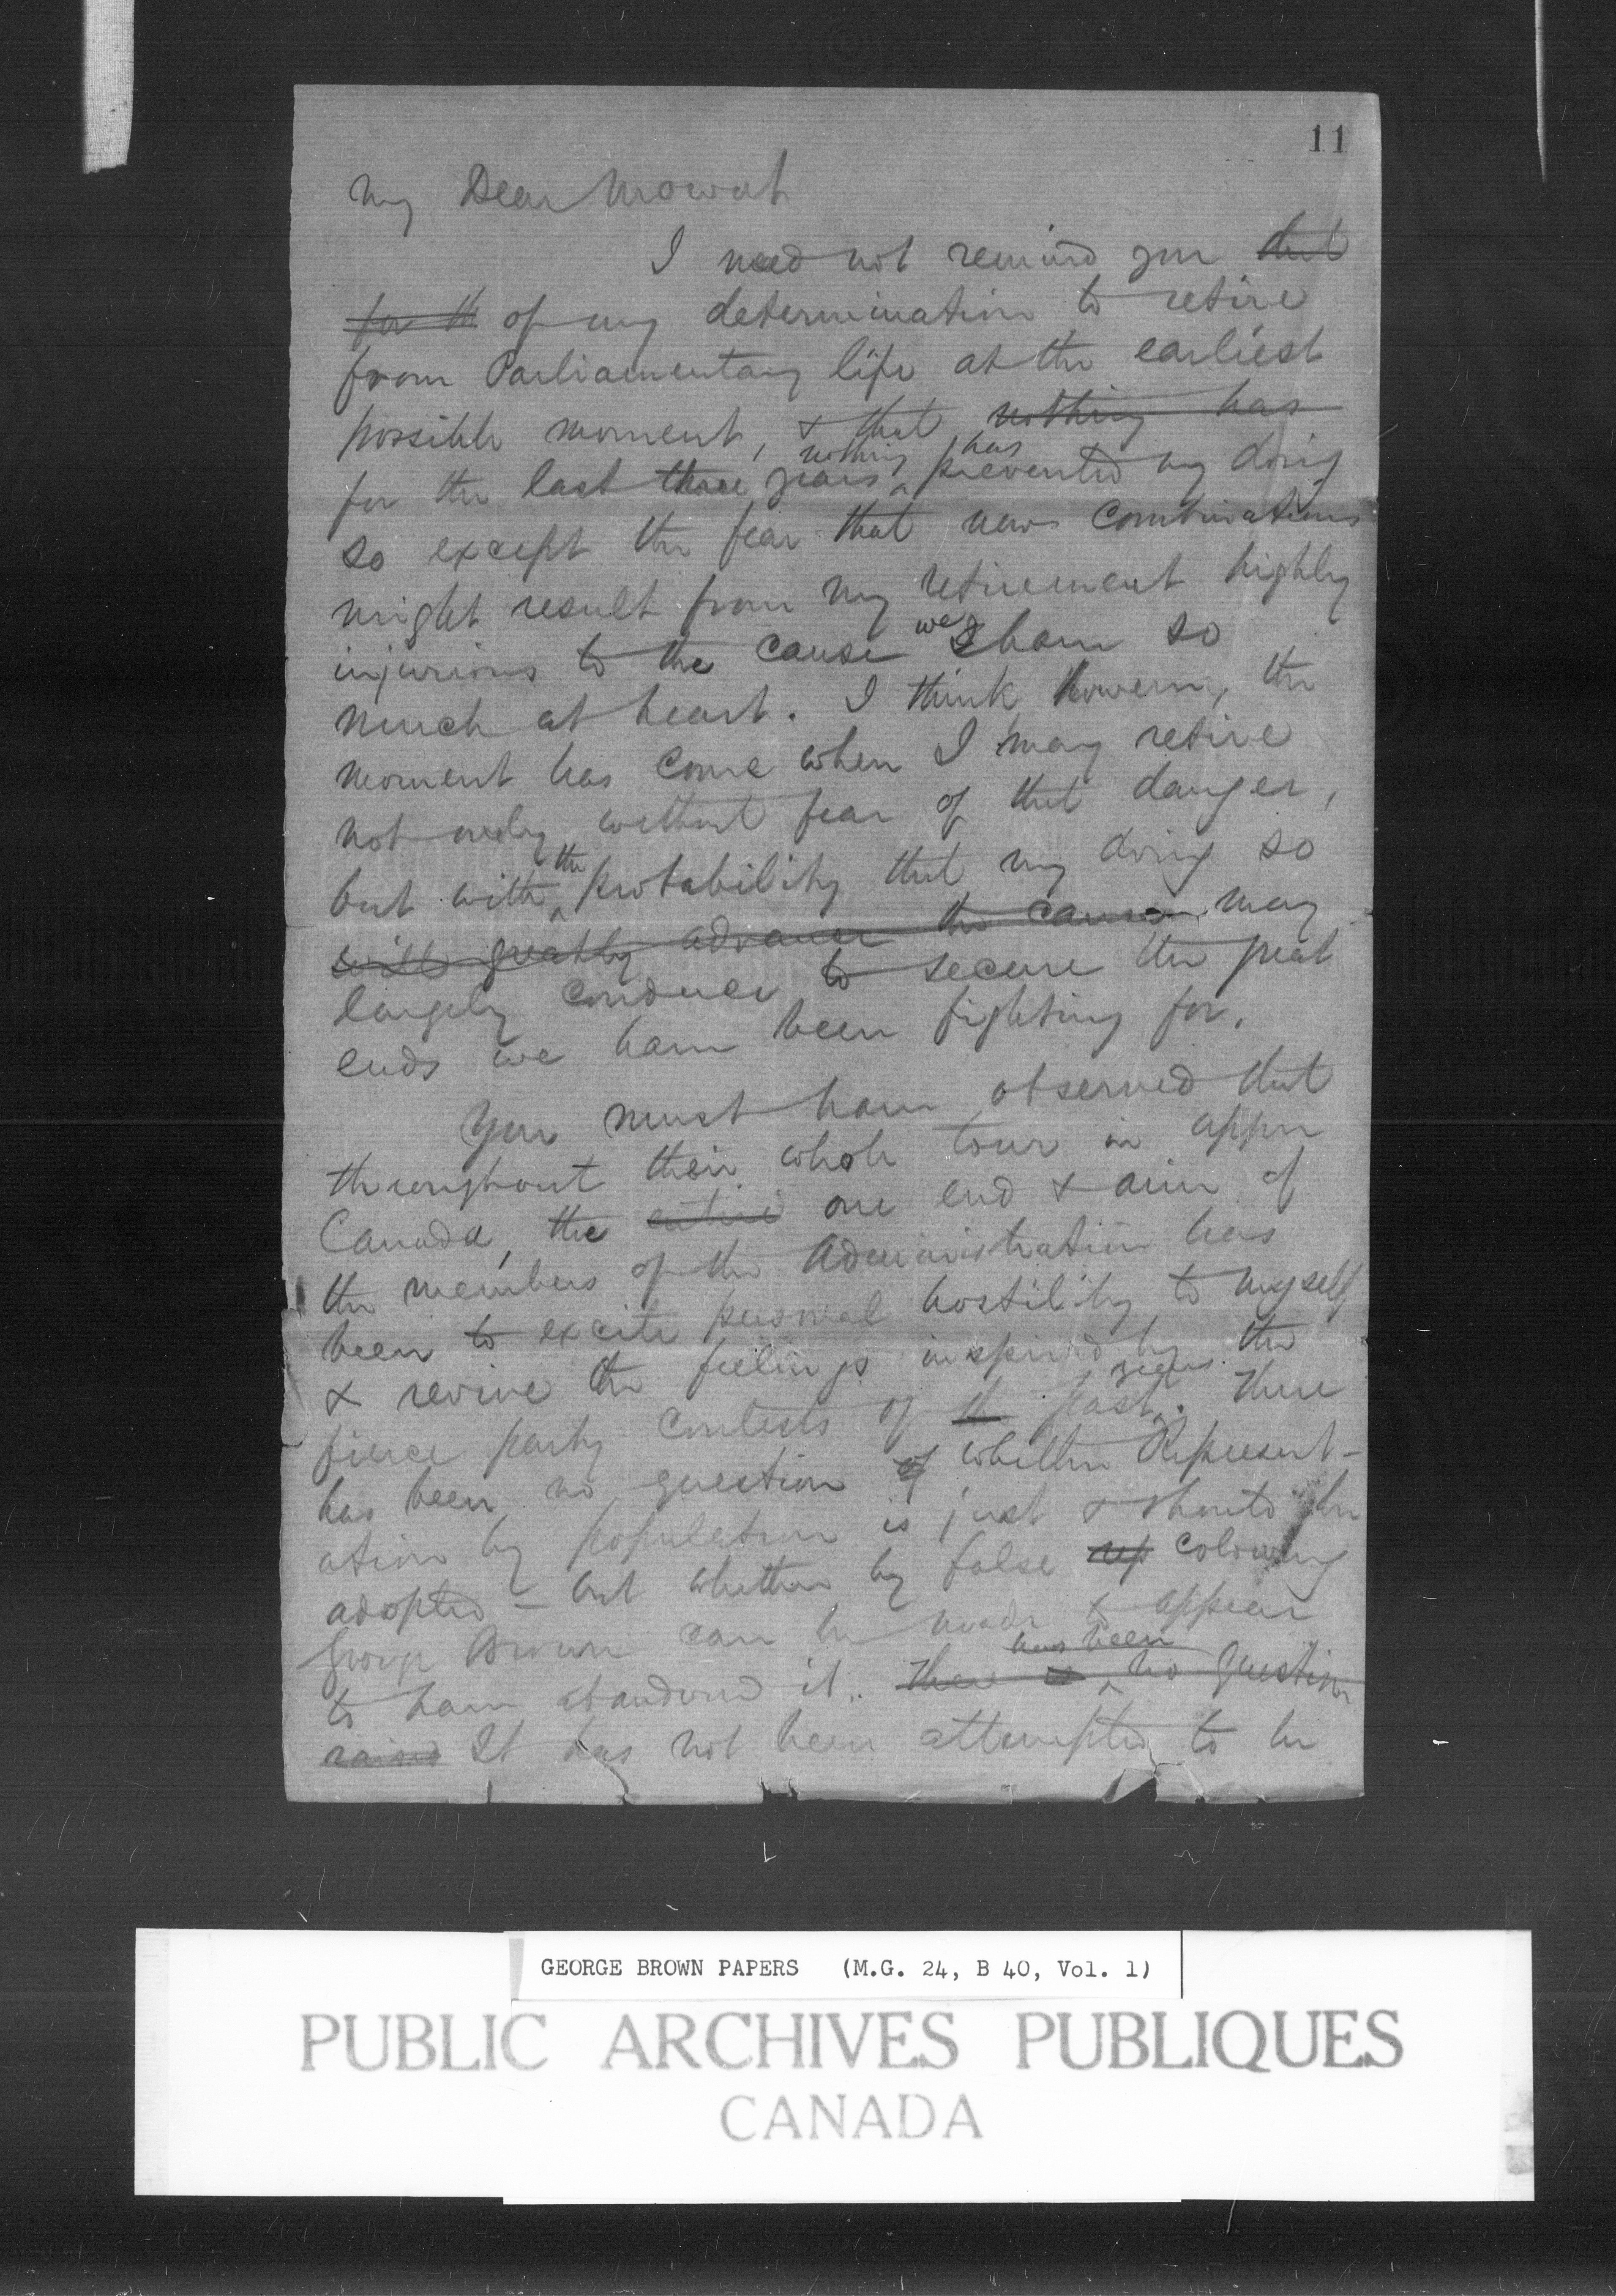 11
My Dear Mowat
I need not remind you that
for th of my determination to retire
from Parliamentary life at the earliest
possible moment, & that nothing has
for the last three years nothing has prevented my doing
so except the fear that new combinations
might result from my retirement highly
injurious to the cause we have so
much at heart. I think however, the
moment has come when I may retire
not only without fear of that danger,
but with the probability that my doing so
will greatly advance the cause may
largely conduce to secure the great
ends we have been fighting for.
You must have observed that
throughout their whole tour in Upper
Canada, the entire one end & aim of
the members of the Administration has
been to excite personal hostility to myself,
& revive the feelings inspired by the
fierce party contests of th past years. There
has been no question of whether Represent-
ation by population is just & should be
adopted - but whether by false rep colouring
George Brown can be made to appear
to have abandoned it. There is has been no question
raised It has not been attempted to be
GEORGE BROWN PAPERS (M.G. 24, B 40, Vol. 1)
PUBLIC ARCHIVES PUBLIQUES
CANADA